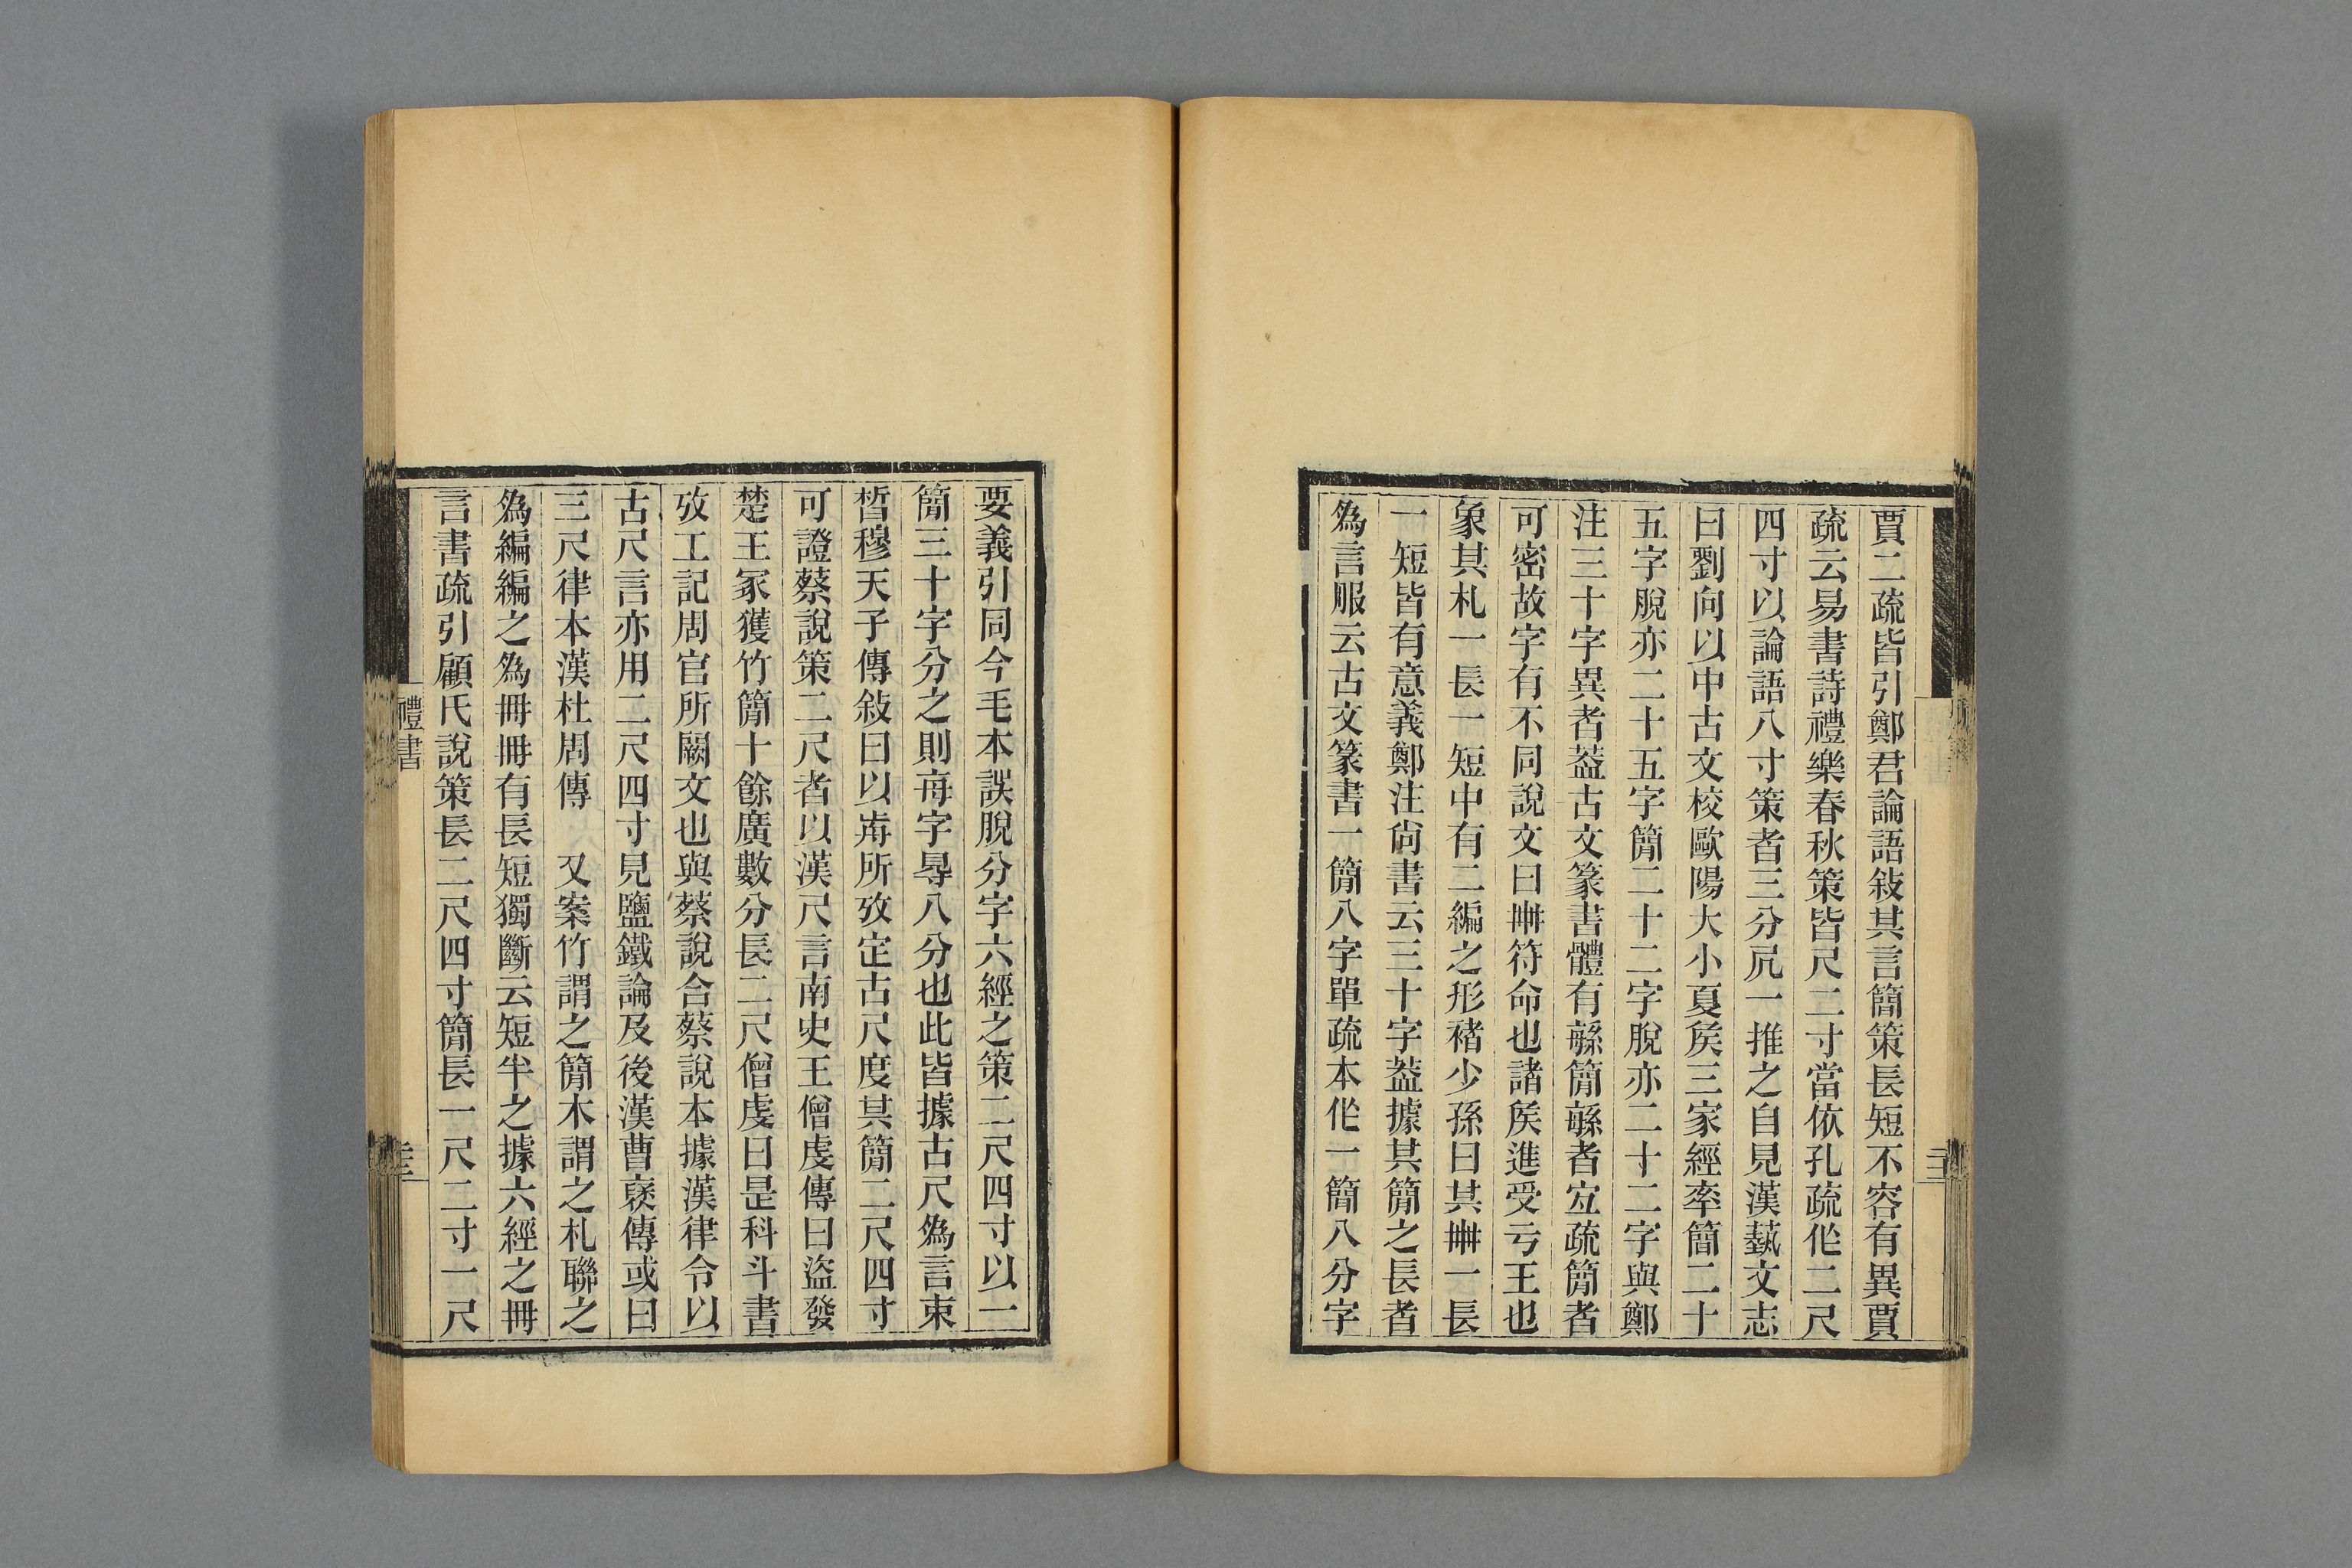 賈二疏皆引鄭君論語敍其言簡策長短不容有異賈
疏云易書詩禮樂春秋策皆尺二寸當依孔疏作二尺
四寸以論語八寸策者三分凥一推之自見漢蓺文志
曰劉向以中古文校歐陽大小夏矦三家經率簡二十
五字脫亦二十五字簡二十二字脫亦二十二字與鄭
注三十字異者葢古文篆書體有緐簡緐者宐疏簡者
可密故字有不同說文曰冊符命也諸矦進受亏王也
象其札一長一短中有二編之形褚少孫曰其冊一長
一短皆有意義鄭注尙書云三十字葢據其簡之長者
爲言服云古文篆書一簡八字單疏本作一簡八分字
要義引同今毛本誤脫分字六經之策二尺四寸以一
簡三十字分之則每字㝵八分也此皆據古尺爲言束
晳穆天子傳敍曰以歬所攷定古尺度其簡二尺四寸
可證蔡說策二尺者以漢尺言南史王僧虔傳曰盜發
楚王冢獲竹簡十餘廣數分長二尺僧虔曰是科斗書
攷工記周官所闕文也與蔡說合蔡說本據漢律令以
古尺言亦用二尺四寸見鹽鐵論及後漢曹襃傳或曰
三尺律本漢杜周傳　又案竹謂之簡木謂之札聯之
爲編編之爲冊冊有長短獨斷云短半之據六經之冊
言書疏引顧氏說策長二尺四寸簡長一尺二寸一尺
禮書